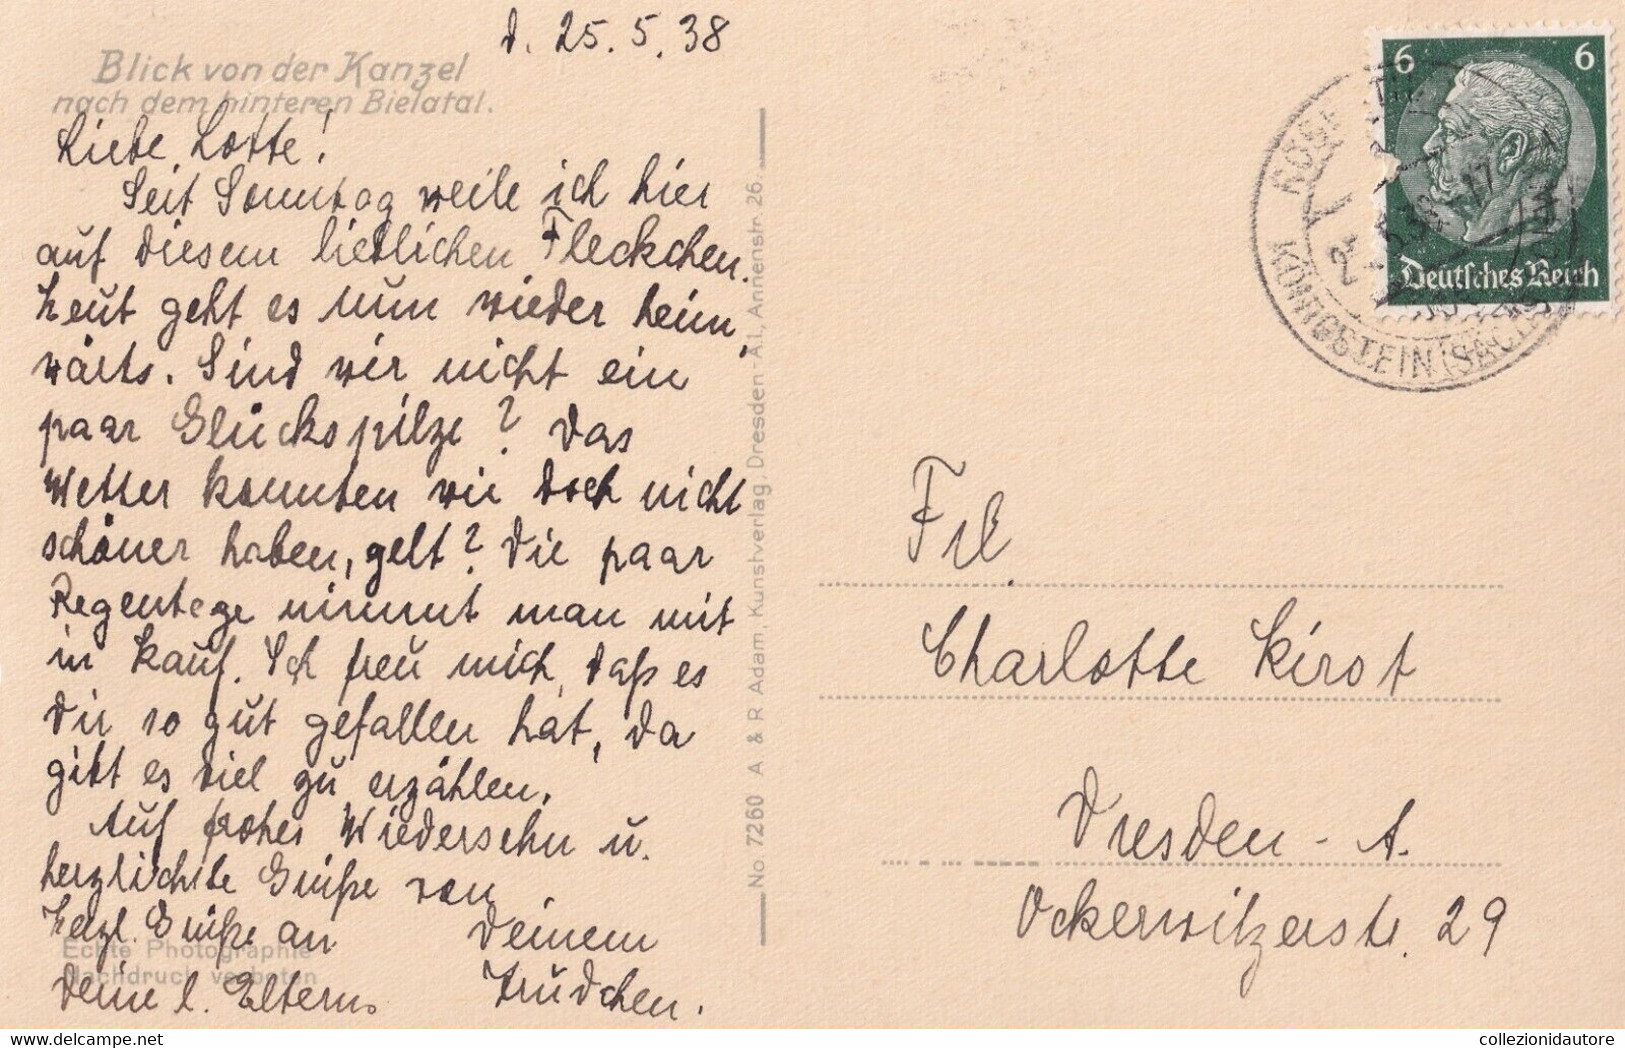 d. 25.5.38
Blick von der Kanzel
nach dem hinteren Bielatal.
Liebe Lotte!
Seit Sonntag weile ich hier
auf diesem lieblichen Fleckchen.
Heut geht es nun wieder heim,
wärts. Sind wir nicht ein
paar Glückspilze? Das
Wetter konnten wir doch nicht
schöner haben, gelt? Die paar
Regentage nimmt man mit
in Kauf. Ich freu mich, daß es
Dir so gut gefallen hat, da
gibt es viel zu erzählen.
Auf frohes Wiedersehn u.
herzlichste Grüße von
Herzl. Grüße an Deinem
Deine l. Eltern. Trudchen.
Echte Photographie
Nachdruck verboten
No. 7260 A & R Adam, Kunstverlag, Dresden-A.1, Annenstr. 26.
6 6
Deutsches Reich
KÖNIGSTEIN (SÄCHS.
Frl.
Charlotte Kirst
Dresden-A.
Ockerwitzerstr. 29
collezionidautore